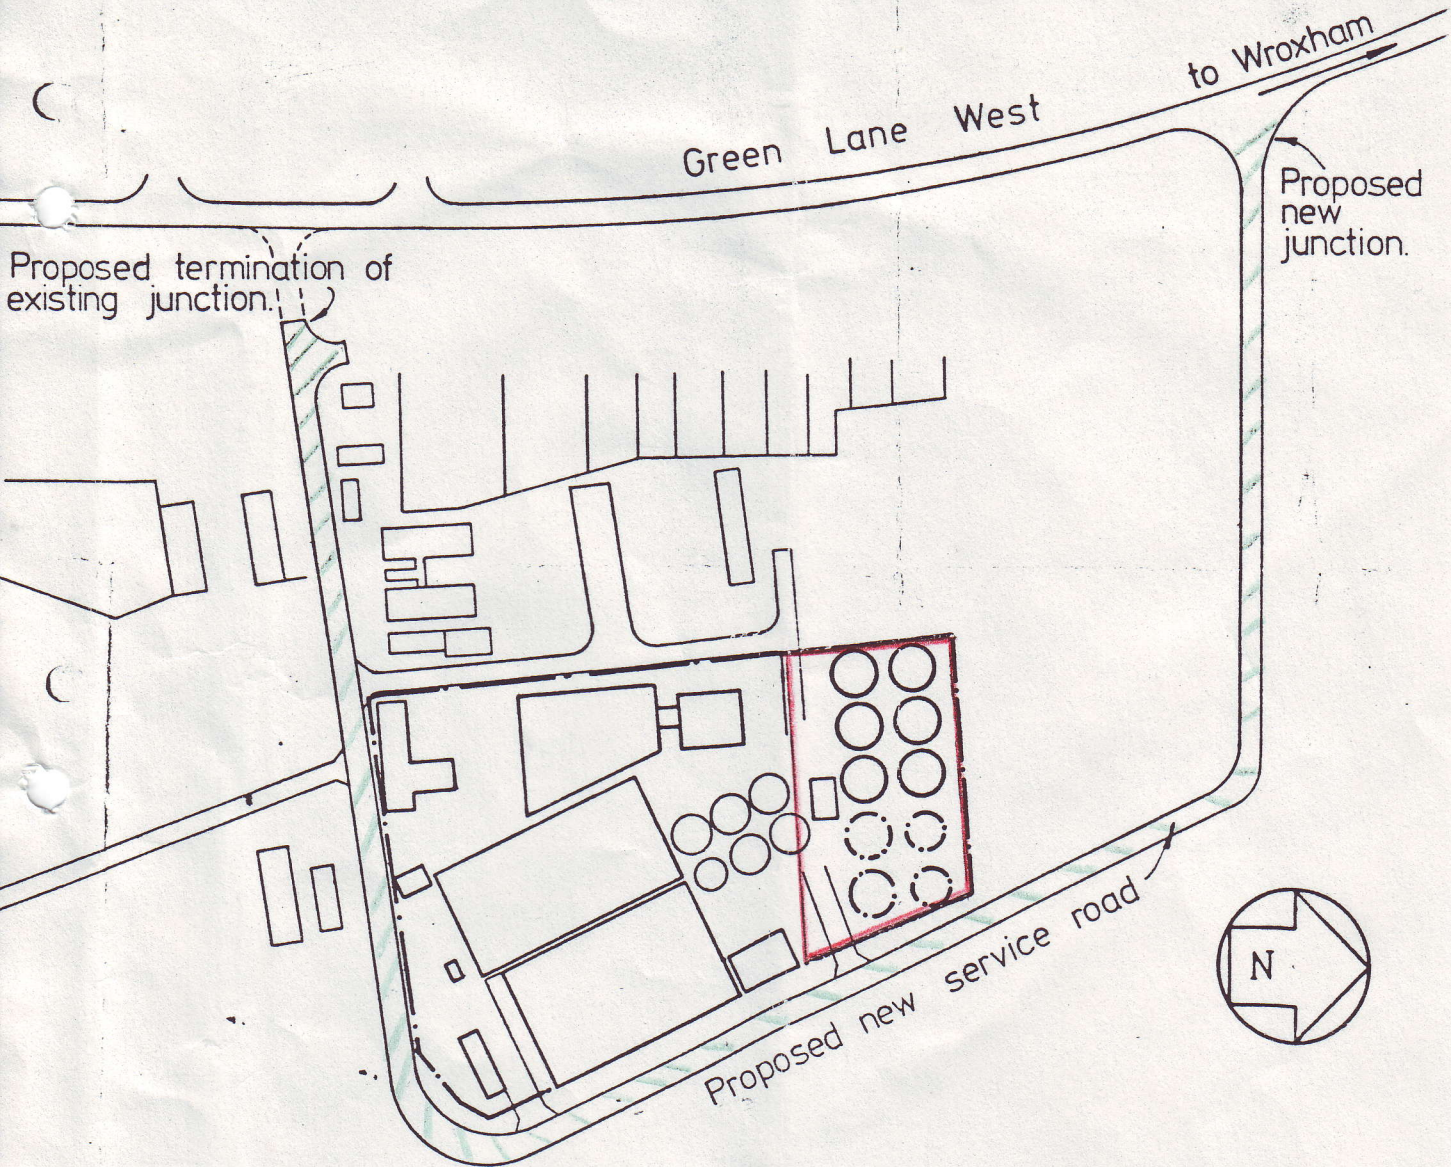 to Wroxham
Green Lane West
Proposed
new
junction.
Proposed termination of
existing junction.
Proposed new service road
N